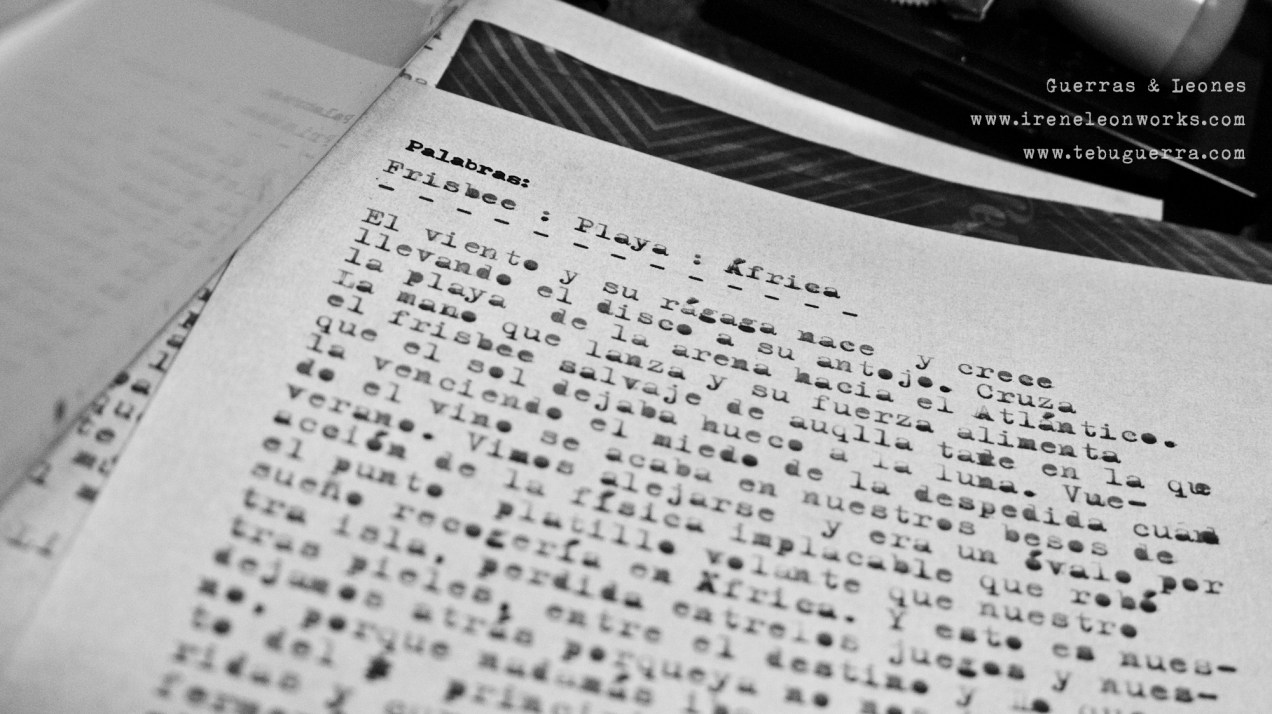 Guerras & Leones
www.ireneleonworks.com
www.tebuguerra.com
Palabras:
Frisbee : Playa : África
El viento y su rágaga nace y crece
llevando el disco a su antojo. Cruza
la playa de la arena hacia el Atlántico.
La mano que lanza y su fuerza alimenta
el frisbee salvaje de auqlla tade en la que
que el sol dejaba hueco a la luna. Vue-
la venciendo el miedo de la despedida cuan
do el vino se acaba en nuestros besos de
verano. Vimos alejarse y era un óvalo por
acción de la física implacable que robó
el punto platillo volante que nuestro
sueño recogería en África. Y esto es nues-
tra isla, perdida entrelos juegos y nues-
tras pieles, entre el destino y lo que
dejamos atrás porqueya no
no, porque nadamás
to del
ridas y